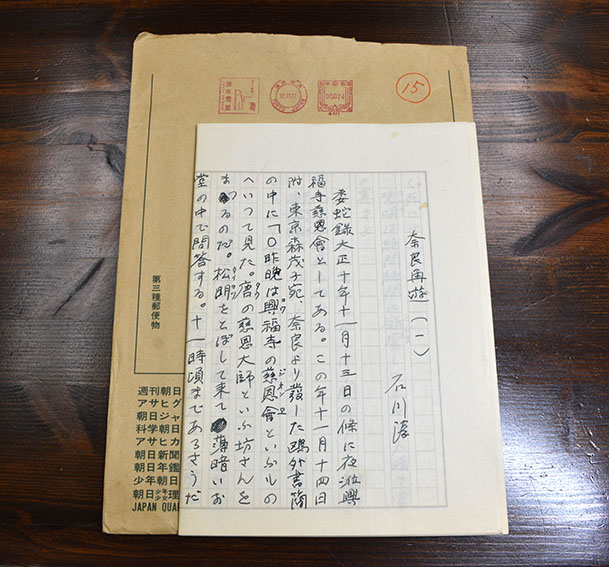 奈良再遊（一）
石川淳
委蛇録大正十年十一月十三日の條に夜涖興
福寺慈恩會としてある。この年十一月十四日
附、東京森茂子宛、奈良より發した鷗外書簡
の中に「〇昨晩は興福寺の慈恩會といふもの
へいつて見た。唐の慈恩大師といふ坊さんを
まつるのだ。松明をとぼして来て薄暗いお
堂の中で問答する。十一時頃まであるさうだ
15
第三種郵便物
週刊朝日グ
JAPAN QUA